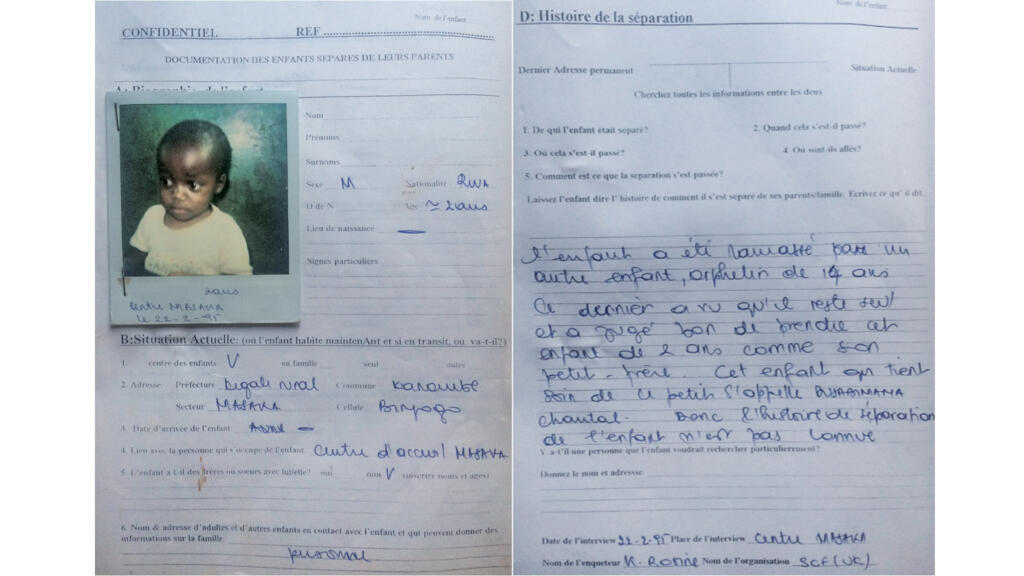 Nom de l'enfant
CONFIDENTIEL REF
DOCUMENTATION DES ENFANTS SEPARES DE LEURS PARENTS
A: Biographie de l'enfant
Nom
Prénoms
Surnoms
Sexe M Nationalité RWA
D de N Age ≃ 2 ans
Lieu de naissance —
Signes particuliers
2 ans
Centre MASAKA
le 22-2-95
B:Situation Actuelle: (où l'enfant habite maintenAnt et si en transit, où va-t-il?)
1. centre des enfants V en famille seul autres
2. Adresse Préfecture Kigali rural Commune Kanombe
Secteur MASAKA Cellule
3. Date d'arrivée de l'enfant —
4. Lien avec la personne qui s'occupe de l'enfant Centre d'accueil MASAKA
5. L'enfant a-t-il des frères ou soeurs avec lui/elle? oui non V (inscrire noms et ages)
6. Nom & adresse d'adultes et d'autres enfants en contact avec l'enfant et qui peuvent donner des
informations sur la famille.
personne
Nom de l'enfant
D: Histoire de la séparation
Dernier Adresse permanent Situation Actuelle
Cherchez toutes les informations entre les deux
1. De qui l'enfant était separé? 2. Quand cela s'est-il passé?
3. Où cela s'est-il passé? 4. Où sont-ils allés?
5. Comment est ce que la separation s'est passée?
Laissez l'enfant dire l' histoire de comment il s'est separe de ses parents/famille. Ecrivez ce qu' il dit.
L'enfant a été ramassé par un
autre enfant, orphelin de 14 ans
Ce dernier a vu qu'il reste seul
et a jugé bon de prendre cet
enfant de 2 ans comme son
petit-frère. Cet enfant qui tient
soin de ce petit s'appelle
chantal. Donc l'histoire de séparation
de l'enfant n'est pas connue
Y a-t'il une personne que l'enfant voudrait rechercher particulierement?
Donnez le nom et adresse
Date de l'interview 22-2-95 Place de l'interview Centre MASAKA
Nom de l'enqueteur Nom de l'organisation SCF(UK)